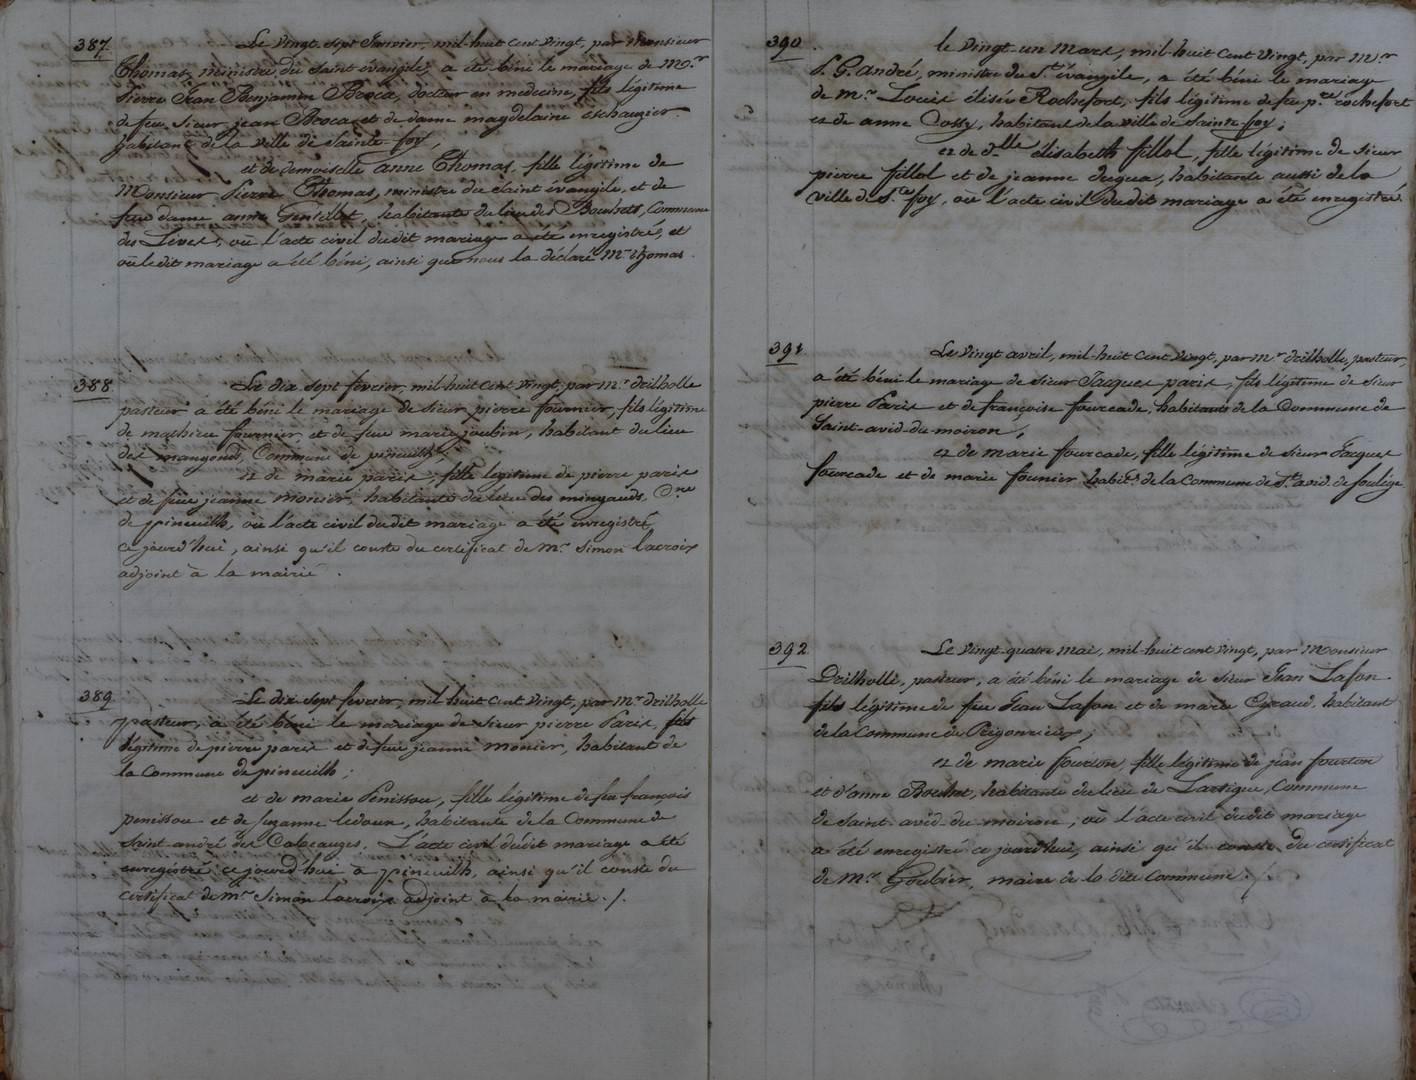 387.
Le Vingt-Sept Janvier, mil-huit cent vingt, par Monsieur
Thomas, ministre du Saint évangile, a été béni le mariage de Mr.
Pierre Jean Benjamin Broca, docteur en médecine, fils légitime
de feu Sieur jean Broca et de dame magdelaine eschauzier.
habitant de la Ville de Sainte-foy,
et de demoiselle anne Thomas, fille légitime de
Monsieur Pierre Thomas, ministre du Saint évangile, et de
feue dame anne Gentillot, habitante du lieu des Bouhets, Commune
des Lèves, où l'acte civil dudit mariage a été enregistré, et
où ledit mariage a été béni, ainsi que nous la déclaré Mr thomas.
388
Le dix-sept février, mil-huit cent vingt, par Mr. drilholle
pasteur a été béni le mariage de Sieur pierre fournier, fils légitime
de mathieu fournier et de feue marie joubin, habitant du lieu
des mangons, Commune de pineuilh,
et de marie paris, fille legitime de pierre paris
et de feue jeanne monier, habitante du lieu des mingauds, Cne
de pineuilh, où l'acte civil dudit mariage a été enregistré
ce jourd'hui, ainsi qu'il conste du certificat de Mr. Simon lacroix
adjoint à la mairie.
389
Le dix-sept février, mil-huit cent vingt, par Mr. drilholle
pasteur, a été béni le mariage de Sieur pierre Paris, fils
légitime de pierre paris et de feue jeanne monier, habitant de
la Commune de pineuilh;
et de marie Penissou, fille légitime de feu françois
penissou et de suzanne ledoux, habitante de la Commune de
Saint-andré de Cabeauges. L'acte civil dudit mariage a été
enregistré ce jourd'hui à pineuilh, ainsi qu'il conste du
certificat de Mr. Simon lacroix adjoint à la mairie ./.
390.
le vingt-un Mars, mil-huit cent vingt, par Mr
P. G. andré, ministre du St évangile, a été béni le mariage
de Mr. Louis élisée Rochefort, fils légitime de feu pre rochefort
et de anne Dossy, habitant de la ville de Sainte-foy;
et de dlle élisabeth fillol, fille légitime de Sieur
pierre fillol et de jeanne, habitante aussi de la
Ville de Ste foy, où l'acte civil dudit mariage a été enregistré.
391.
Le vingt avril, mil-huit cent vingt, par Mr. drilholle, pasteur,
a été béni le mariage de Sieur Jacques paris, fils légitime de Sieur
pierre Paris et de françoise fourcade, habitants de la Commune de
Saint-avid-du-moiron,
et de marie fourcade, fille légitime de Sieur Jacques
fourcade et de marie founier habits de la Commune de St. avid de soulège
392
Le vingt-quatre mai, mil-huit cent vingt, par Monsieur
Drilholle, pasteur, a été béni le mariage de Sieur Jean Lafon
fils légitime de feu Jean Lafon et de marie Eyraud, habitant
de la Commune de Prigonrieux,
et de marie fourton, fille légitime de jean fourton
et d'anne Bouhet, habitante du lieu de Lartigue, Commune
de Saint-avid-du-moiron, où l'acte civil dudit mariage
a été enregistré ce jourd'hui, ainsi qu'il conste du certificat
de Mr. Goubier, maire de la dite Commune ./.